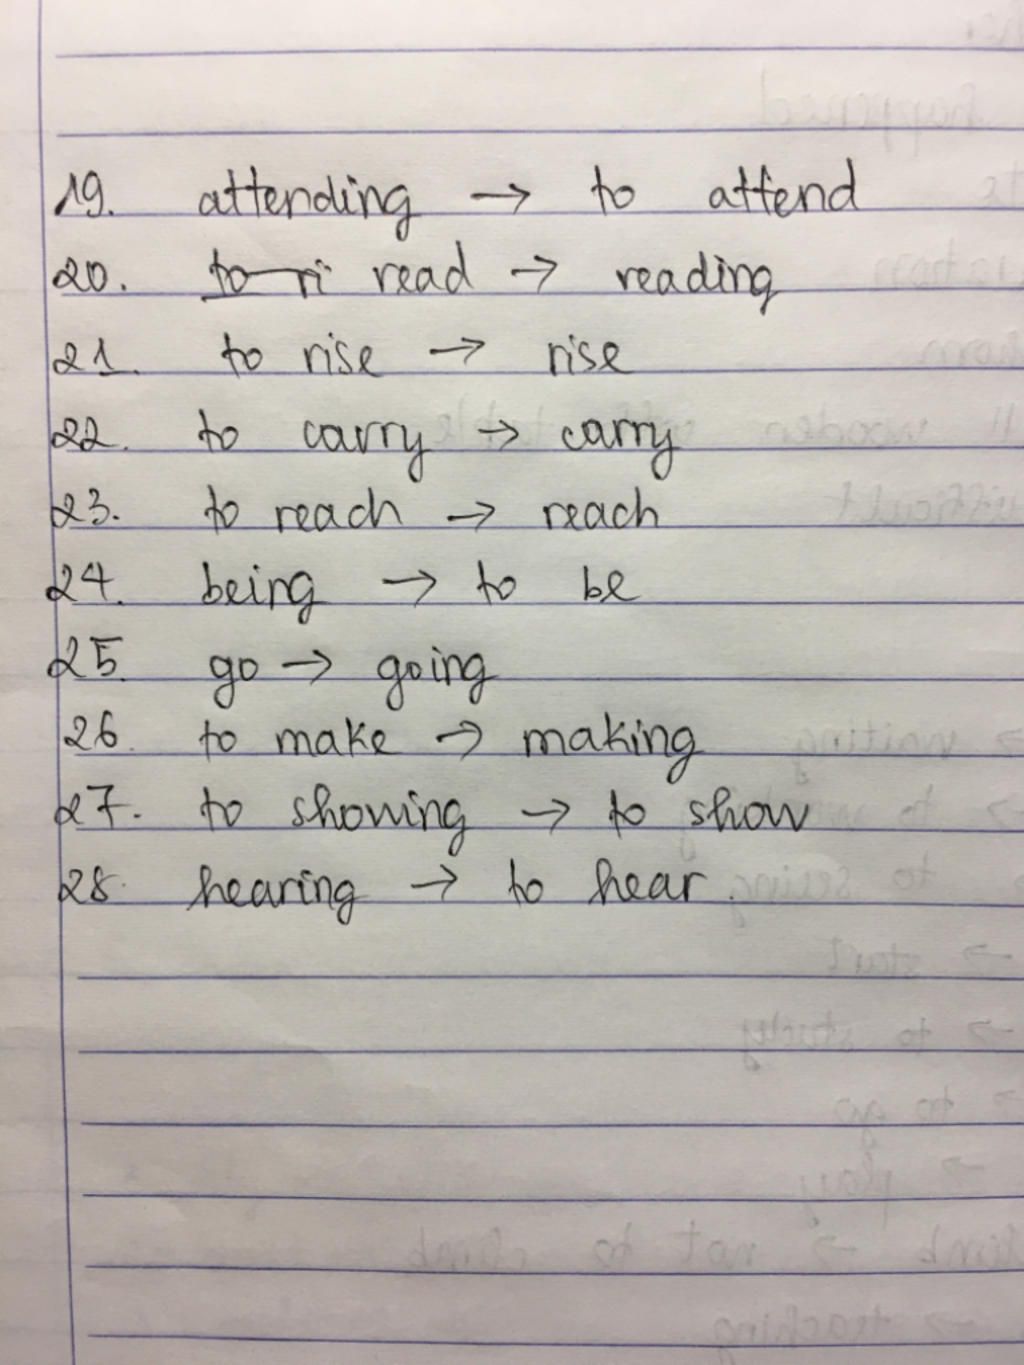 19. attending → to attend
20. to ri read → reading
21. to rise → rise
22. to carry → carry
23. to reach → reach
24. being → to be
25. go → going
26. to make → making
27. to showing → to show
28. hearing → to hear.